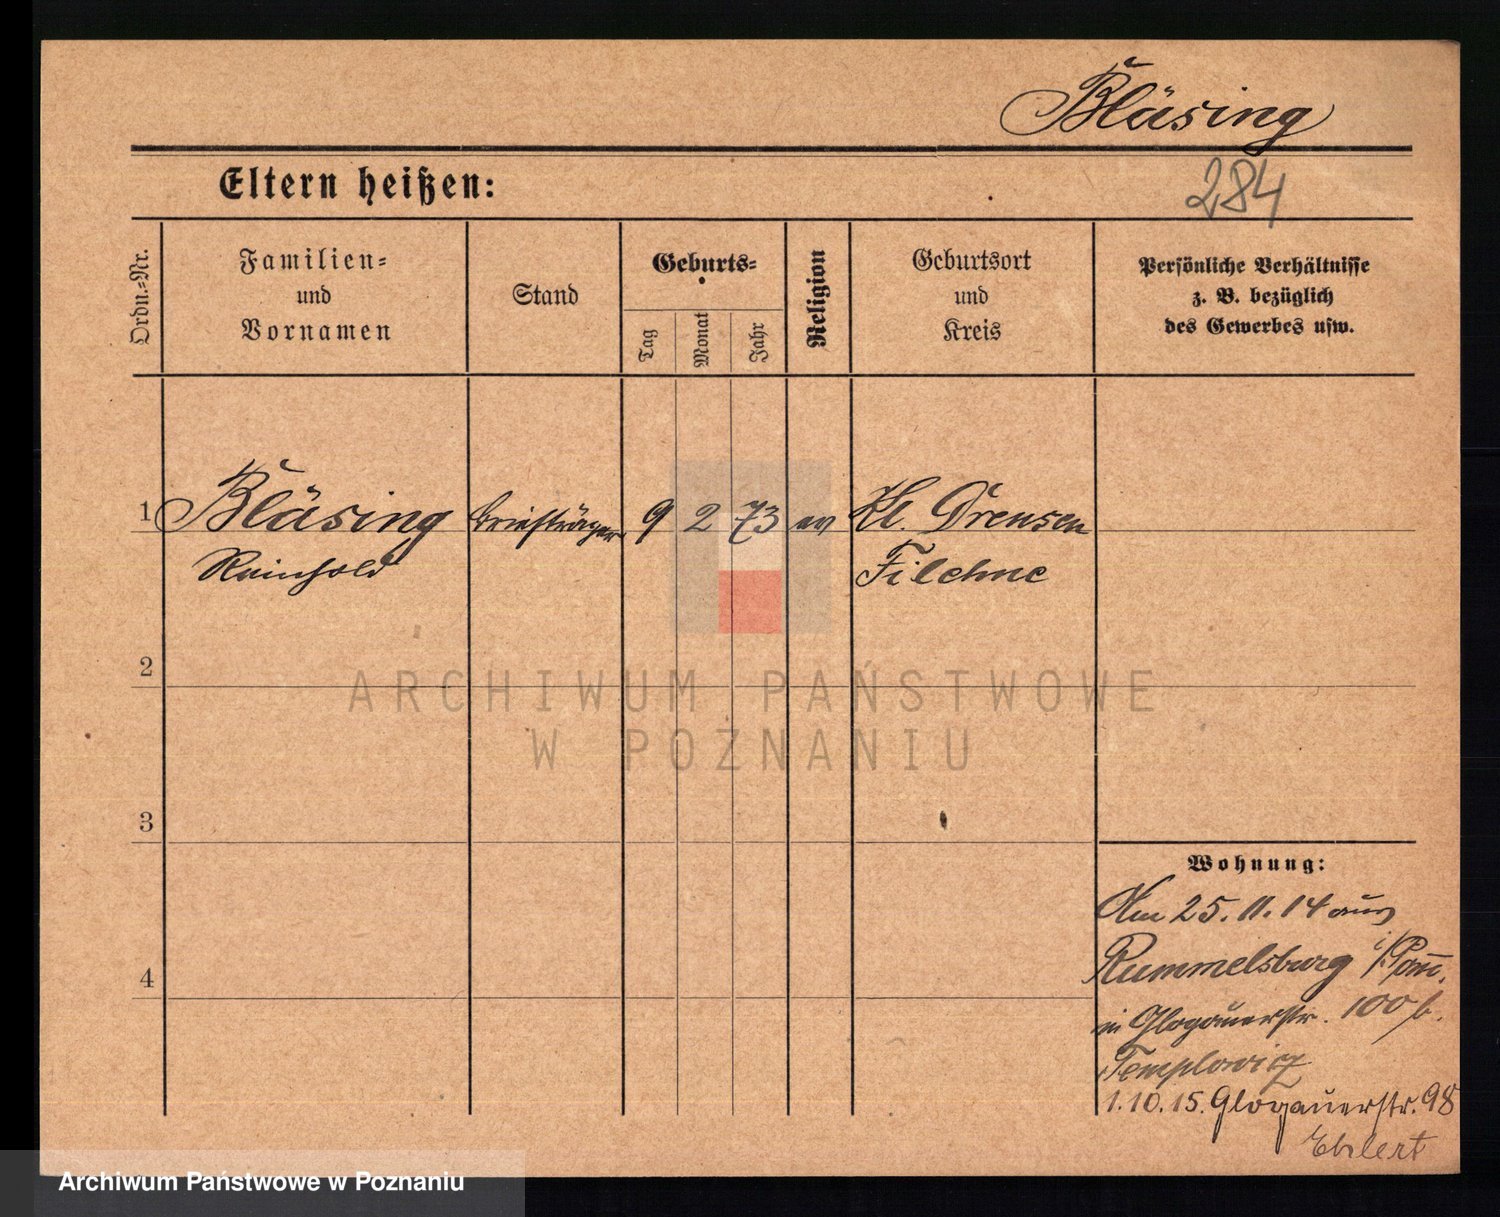 Bläsing
284
Eltern heißen:
Ordn.-Nr.
Familien-
und
Vornamen
Stand
Geburts-
Tag
Monat
Jahr
Religion
Geburtsort
und
Kreis
Persönliche Verhältnisse
z. B. bezüglich
des Gewerbes usw.
1 Bläsing Briefträger 9 2 73 ev Kl. Drensen
Reinhold Filehne
2
3
4
ARCHIWUM PAŃSTWOWE
W POZNANIU
Wohnung:
Am 25.11.14 aus
Rummelsburg i/Pom.
in Glogauerstr. 100 b.
1.10.15. Glogauerstr. 98
Ehlert
Archiwum Państwowe w Poznaniu